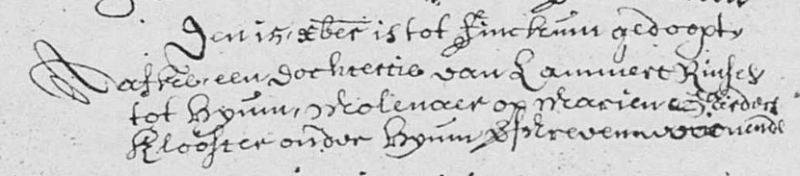 Den 15. xber is tot Finckum gedoopt,
een dochtertie van Lammert Rinses
tot Hyum, Molenaer op Mariengaerder
Klooster onder Hyum woonende